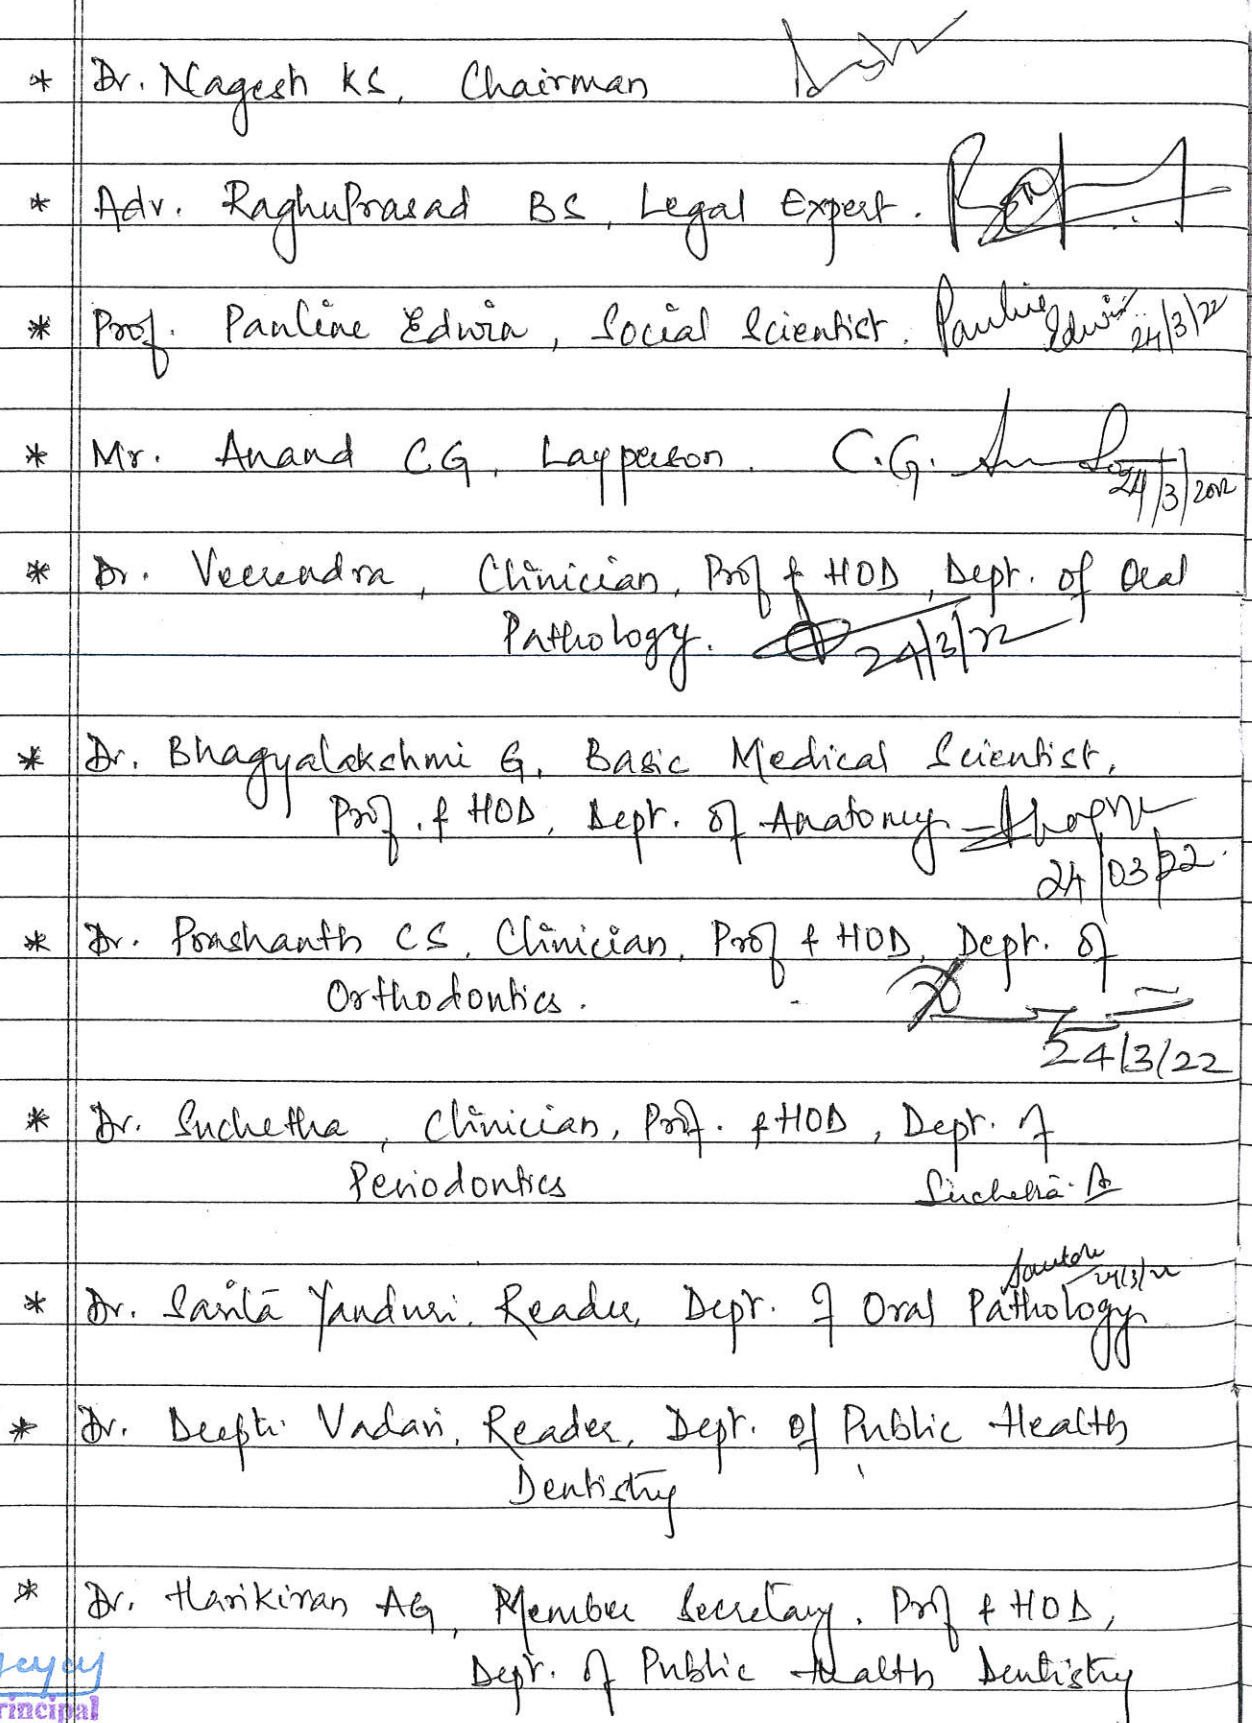 * Dr. Nagesh KS, Chairman
* Adv. RaghuPrasad BS, Legal Expert.
* Prof. Pauline Edwin, Social Scientist. Pauline Edwin 24/3/22
* Mr. Anand C.G, Layperson. C.G.
24/3/2022
* Dr. Veerendra, Clinician, Prof & HOD, Dept. of Oral
Pathology. 24/3/22
* Dr. Bhagyalakshmi G, Basic Medical Scientist,
Prof. & HOD, Dept. of Anatomy
24/03/22.
* Dr. Prashanth CS, Clinician, Prof & HOD, Dept. of
Orthodontics.
24/3/22
* Dr. Suchetha, Clinician, Prof. & HOD, Dept. of
Periodontics Suchetha. A
24/3/22
* Dr. Sarita Yanduri, Reader, Dept. of Oral Pathology
* Dr. Deepti Vadavi, Reader, Dept. of Public Health
Dentistry
* Dr. Harikiran AG, Member Secretary, Prof & HOD,
Dept. of Public Health Dentistry
rincipal